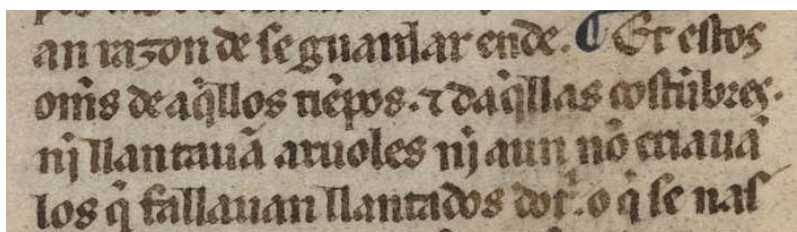 an razon de se guardar ende. ¶ Et estos
om̃s de aq̃llos tiẽpos. ⁊ daq̃llas costũbres.
nj llantauã aruoles nj aun nõ criauã
los q̃ fallauan llantados o q̃ se nas